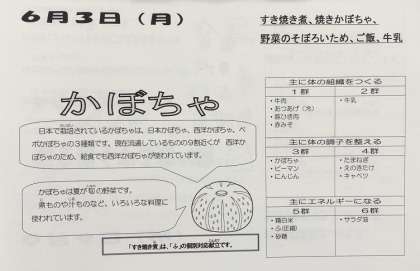 ６月３日（月）
すき焼き煮、焼きかぼちゃ、
野菜のそぼろいため、ご飯、牛乳
かぼちゃ
日本で栽培されているかぼちゃは、日本かぼちゃ、西洋かぼちゃ、ペ
ポかぼちゃの３種類です。現在流通しているものの９割近くが　西洋か
ぼちゃのため、給食でも西洋かぼちゃが使われています。
かぼちゃは夏が旬の野菜です。
煮ものや汁ものなど、いろいろな料理に
使われています。
「すき焼き煮」は、「ふ」の個別対応献立です。
主に体の組織をつくる
１群　２群
・牛肉　・牛乳
・あつあげ（冷）
・豚ひき肉
・赤みそ
主に体の調子を整える
３群　４群
・かぼちゃ　・たまねぎ
・ピーマン　・えのきたけ
・にんじん　・キャベツ
主にエネルギーになる
５群　６群
・精白米　・サラダ油
・ふ(圧縮)
・砂糖